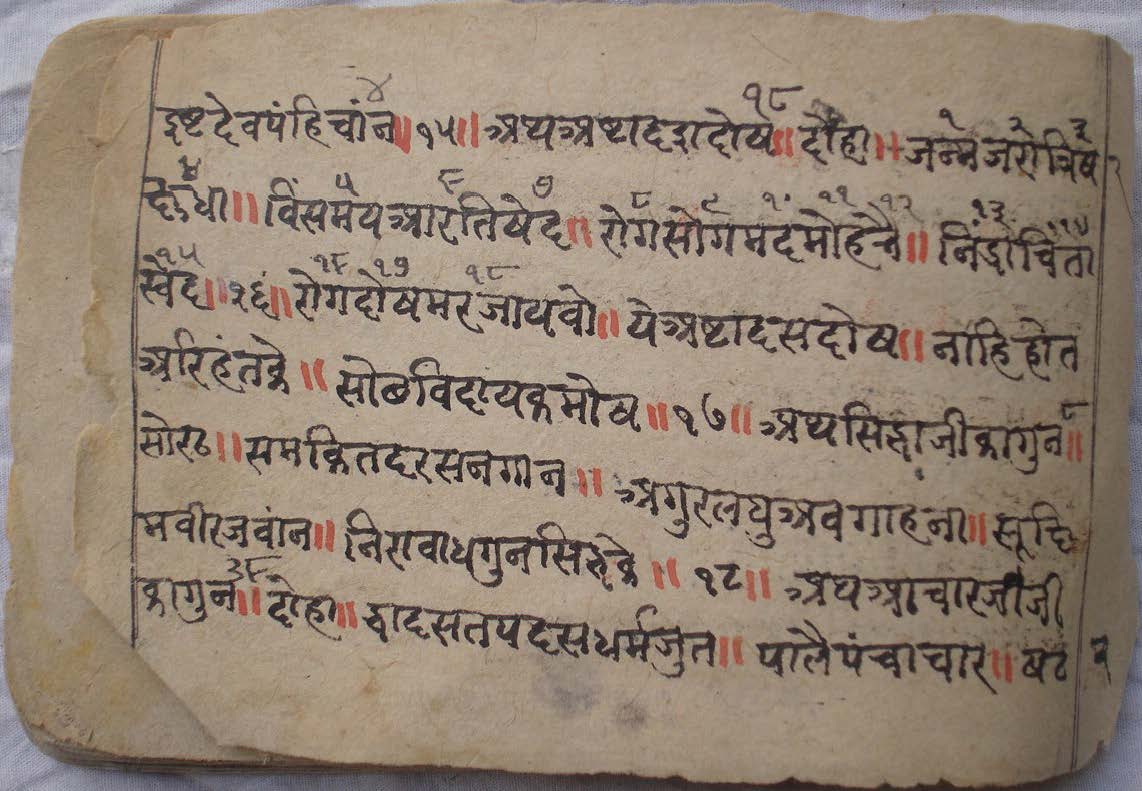 इष्टदेवपंहिचांन॥१५॥ अथअष्टादशदोष॥ दोहा॥ जन्मजरात्रिष
छुधा॥ विंसमयआरतिषेद॥ रोगसोगमदमोहभै॥ निंद्राचिंता
स्वेद॥१६॥ रागदोषमरणजायवो॥ येअष्टादसदोष॥ नांहिहोत
अरिहंतके॥ सोछविदायकमोष॥१७॥ अथसिद्धाजीकागुन ८॥
सोरठ॥ समकितदरसनगान॥ अगुरलघुअवगाहना॥ सूछि
मवीरजवांन॥ निरावाधगुनसिद्धके॥ १८॥ अथआचारजीजी
कागुन ३६॥ दोहा॥ द्वादसतपदसधर्मजुत॥ पालैपंचाचार॥ षट